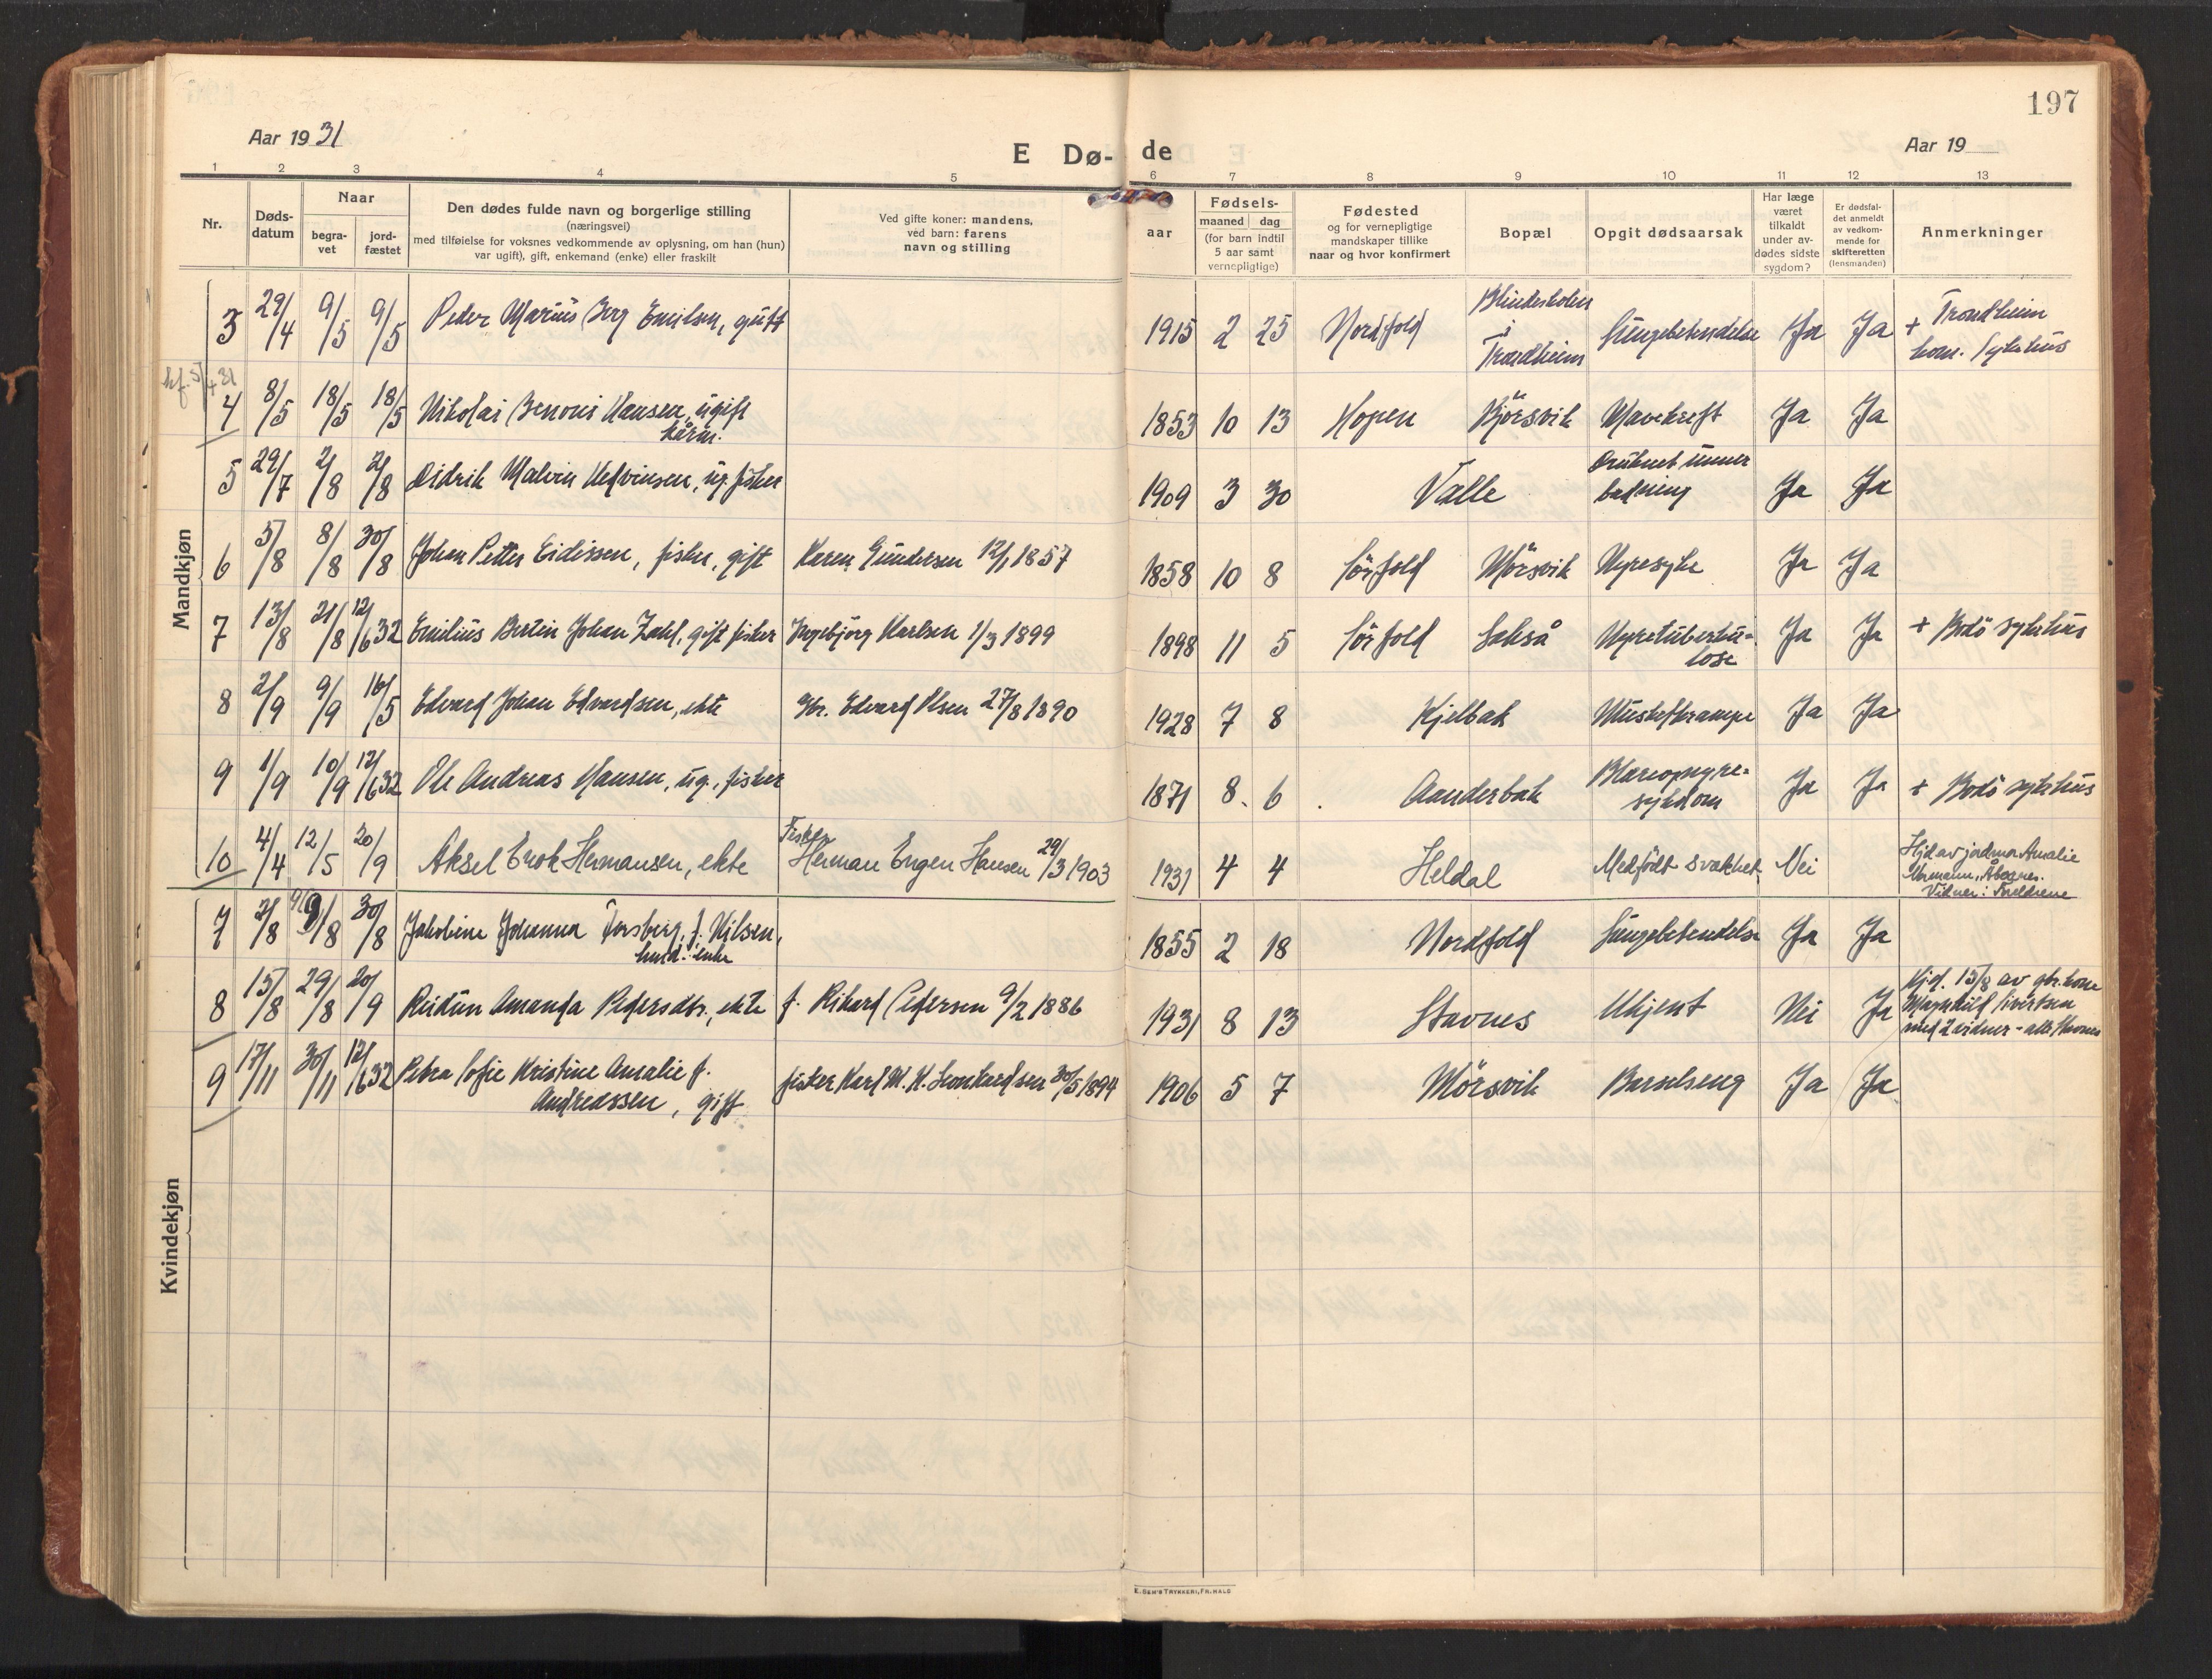 197
Aar 19 31
E Dø- de
Aar 19
1 2 3 4 5 6 7 8 9 10 11 12 13
Nr.
Døds-
datum
Naar
begra-
vet
jord-
fæstet
Den dødes fulde navn og borgerlige stilling
(næringsvei)
med tilføielse for voksnes vedkommende av oplysning, om han (hun)
var ugift), gift, enkemand (enke) eller fraskilt
Ved gifte koner: mandens,
ved barn: farens
navn og stilling
aar
Fødsels-
maaned dag
(for barn indtil
5 aar samt
vernepligtige)
Fødested
og for vernepligtige
mandskaper tillike
naar og hvor konfirmert
Bopæl
Opgit dødsaarsak
Har læge
været
tilkaldt
under av-
dødes sidste
sygdom?
Er dødsfal-
det anmeldt
av vedkom-
mende for
skifteretten
(lensmanden)
Anmerkninger
Mandkjøn
3 29/4 9/5 9/5 Peder Marius Berg Emilsen, gutt 1915 2 25 Nordfold i Trondheim Lungebetendelse Ja Ja + Trondheim
kom. Sykehus
4 8/5 18/5 18/5 Nikolai Benoni Hansen, ugift 1853 10 13 Hopen Kjörsvik Mavekreft Ja Ja
kårm.
5 29/7 2/8 2/8 Didrik Malvin Hedvinsen, ug. fisker 1909 3 30 Valle Druknet under
badning Ja Ja
6 5/8 8/8 30/8 Johan Petter Eidissen, fisker, gift Karen Gundersen 12/1 1857 1858 10 8 Sörfold Mörsvik Nyresyke Ja Ja
7 13/8 21/8 12/6 32 Emilius Bertin Johan Zahl, gift fisker Ingebjörg Karlsen 1/3 1899 1898 11 5 Sörfold Lakså Nyretuberku-
lose Ja Ja + Bodö sykehus
8 2/9 9/9 16/5 Edvard Johan Edvardsen, ekte Gbr. Edvard Olsen 27/8 1890 1928 7 8 Kjelbak Muskelkrampe Ja Ja
9 1/9 10/9 12/6 32 Ole Andreas Hansen, ug., fisker 1871 8. 6 Aanderbak Blæreognyre-
sykdom Ja Ja + Bodö sykehus
10 4/4 12/5 20/9 Aksel Enok Hermansen, ekte Fisker
Herman Engen Hansen 29/3 1903 1931 4 4 Heldal Medfödt svakhet Nei Hjd av jordmor Amalie
Normann, Åbognes.
Vidner: Foreldrene
Kvindekjøn
7 2/8 9/8 30/8 Jakobine Johanna Forsberg, f. Nilsen, 1855 2 18 Nordfold Lungebetendelse Ja Ja
enke
8 15/8 29/8 20/9 Reidun Amanda Pedersdtr., ekte f. Rikard Pedersen 9/2 1886 1931 8 13 Stavnes Ukjent Nei Ja Hjd. 15/8 av gbr. kone
Magnhild Sivertsen
med 2 vidner - alle Stavnes
9 17/11 30/11 12/6 32 Petra Sofie Kristine Amalie f. fisker Karl M. K. Leonhardsen 30/5 1894 1906 5 7 Mörsvik Barselseng Ja Ja
Andreassen, gift
E. SEM'S TRYKKERI, FR.HALD